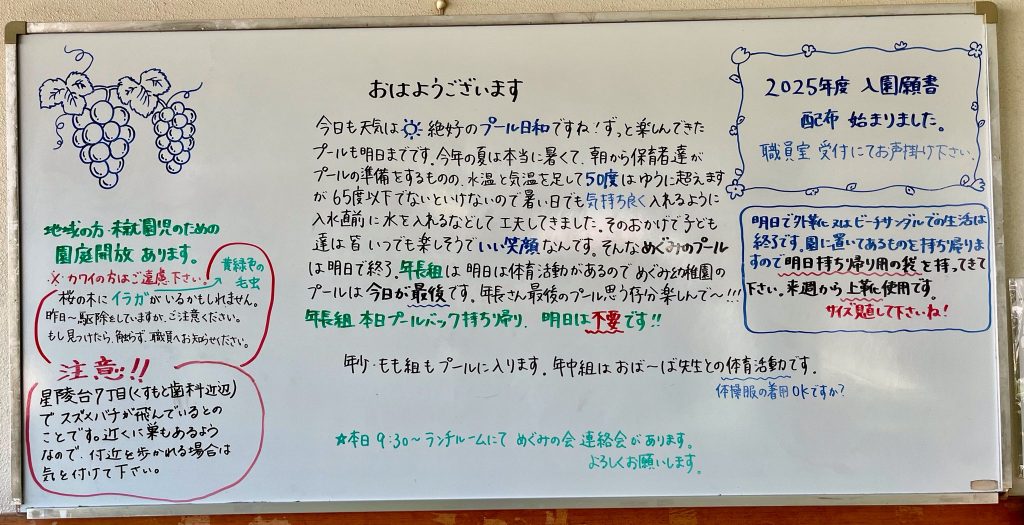 おはようございます
今日も天気は 絶好のプール日和ですね！ずっと楽しんできた
プールも明日までです。今年の夏は本当に暑くて、朝から保育者達が
プールの準備をするものの、水温と気温を足して50度はゆうに超えます
が65度以下でないといけないので暑い日でも気持ち良く入れるように
入水直前に水を入れるなどして工夫してきました。そのおかげで子ども
達は皆いつでも楽しそうでいい笑顔なんです。そんなめぐみのプール
は明日で終了。年長組は明日は体育活動があるのでめぐみ幼稚園の
プールは今日が最後です。年長さん最後のプール思う存分楽しんで〜!!!
年長組 本日プールバック持ち帰り、明日は不要です!!
年少・もも組もプールに入ります。年中組はおば〜ば先生との体育活動です。
体操服の着用OKですか？
☆本日9:30〜ランチルームにて めぐみの会 連絡会があります。
よろしくお願いします。
地域の方・未就園児のための
園庭開放 あります。
※・カワイの方はご遠慮下さい。
黄緑色の
毛虫
桜の木にイラガがいるかもしれません。
昨日〜駆除をしていますが、ご注意ください。
もし見つけたら、触らず、職員へお知らせください。
注意!!
星陵台7丁目(くすもと歯科近辺)
でスズメバチが飛んでいるとの
ことです。近くに巣もあるよう
なので、付近を歩かれる場合は
気を付けて下さい。
2025年度 入園願書
配布 始まりました。
職員室 受付にてお声掛け下さい。
明日で外靴に又はビーチサンダルでの生活は
終了です。園に置いてあるものを持ち帰りま
すので明日持ち帰り用の袋を持ってきて
下さい。来週から上靴に使用です。
サイズ見直して下さいね！